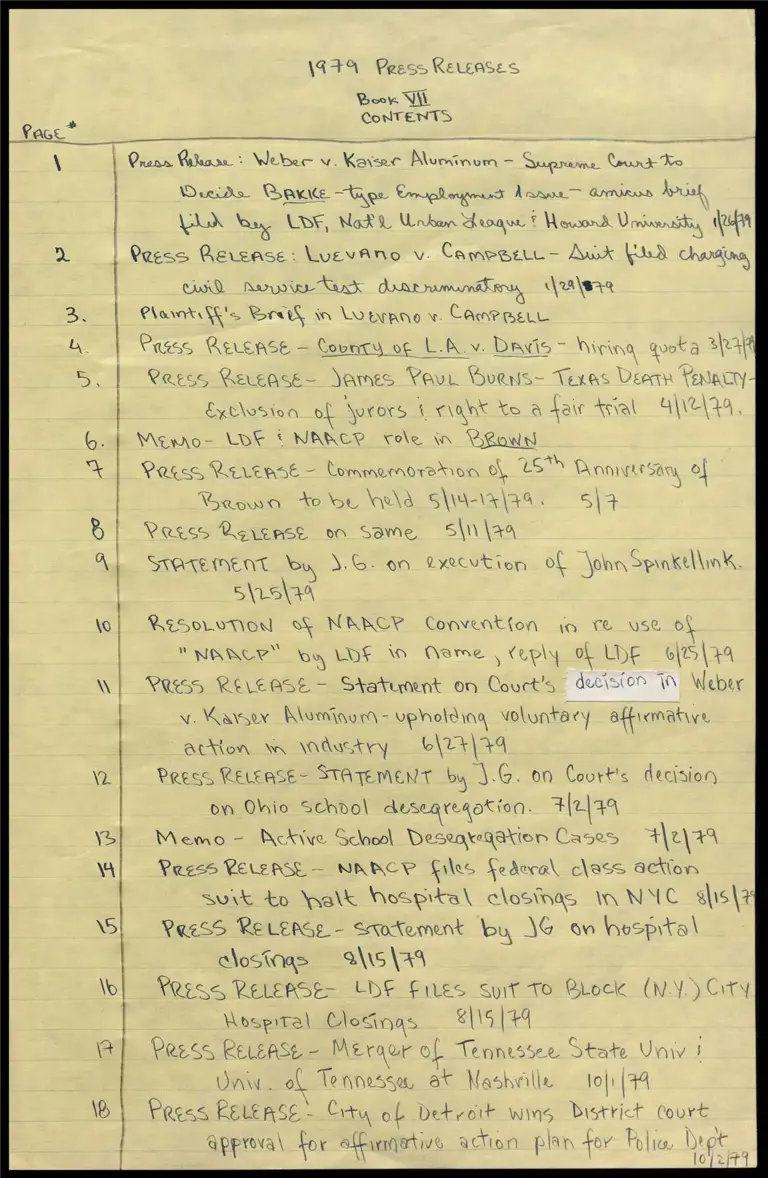 1979 PRESS RELEASES
BOOK VII
CONTENTS
PAGE #
1 Press Release: Weber v. Kaiser Aluminum - Supreme Court to
Decide BAKKE-type Employment Issue - amicus brief
filed by LDF, Nat'l Urban League & Howard University 1/26/79
2 PRESS RELEASE: LUEVANO v. CAMPBELL - Suit filed charging
civil service test discriminatory 1/29/79
3. Plaintiff's Brief in LUEVANO v. CAMPBELL
4. PRESS RELEASE - COUNTY OF L.A. v. DAVIS - hiring quota 3/27/79
5. PRESS RELEASE - JAMES PAUL BURNS - TEXAS DEATH PENALTY-
Exclusion of jurors & right to a fair trial 4/12/79.
6. MEMO - LDF & NAACP role in BROWN
7 PRESS RELEASE - Commemoration of 25th Anniversary of
Brown to be held 5/14-17/79. 5/7
8 PRESS RELEASE on same 5/11/79
9 STATEMENT by J.G. on execution of John Spinkellink.
5/25/79
10 RESOLUTION of NAACP Convention in re use of
"NAACP" by LDF in name, reply of LDF 6/25/79
11 PRESS RELEASE - Statement on Court's decision in Weber
v. Kaiser Aluminum - upholding voluntary affirmative
action in industry 6/27/79
12 PRESS RELEASE - STATEMENT by J.G. on Court's decision
on Ohio school desegregation. 7/2/79
13 Memo - Active School Desegregation Cases 7/2/79
14 PRESS RELEASE - NAACP files federal class action
suit to halt hospital closings in NYC 8/15/79
15 PRESS RELEASE - statement by JG on hospital
closings 8/15/79
16 PRESS RELEASE - LDF FILES SUIT TO BLOCK (N.Y.) CITY
HOSPITAL CLOSINGS 8/15/79
17 PRESS RELEASE - Merger of Tennessee State Univ &
Univ. of Tennessee at Nashville 10/1/79
18 PRESS RELEASE - City of Detroit wins District court
approval for affirmative action plan for Police Dep't
10/2/79